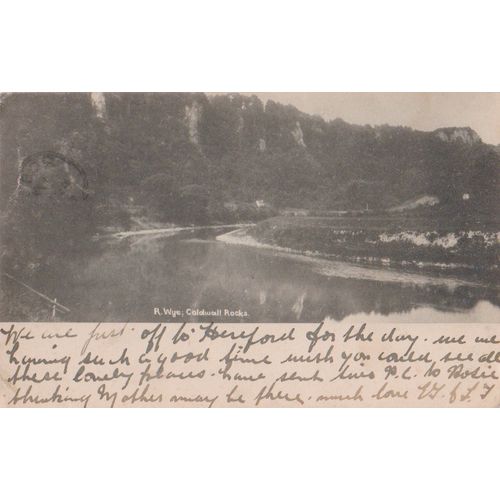 R. Wye; Coldwall Rocks.
We are just off to Hereford for the day. we are
having such a good time wish you could see all
these lovely places. have sent two P.C. to Rosie
thinking Mother may be there. much love